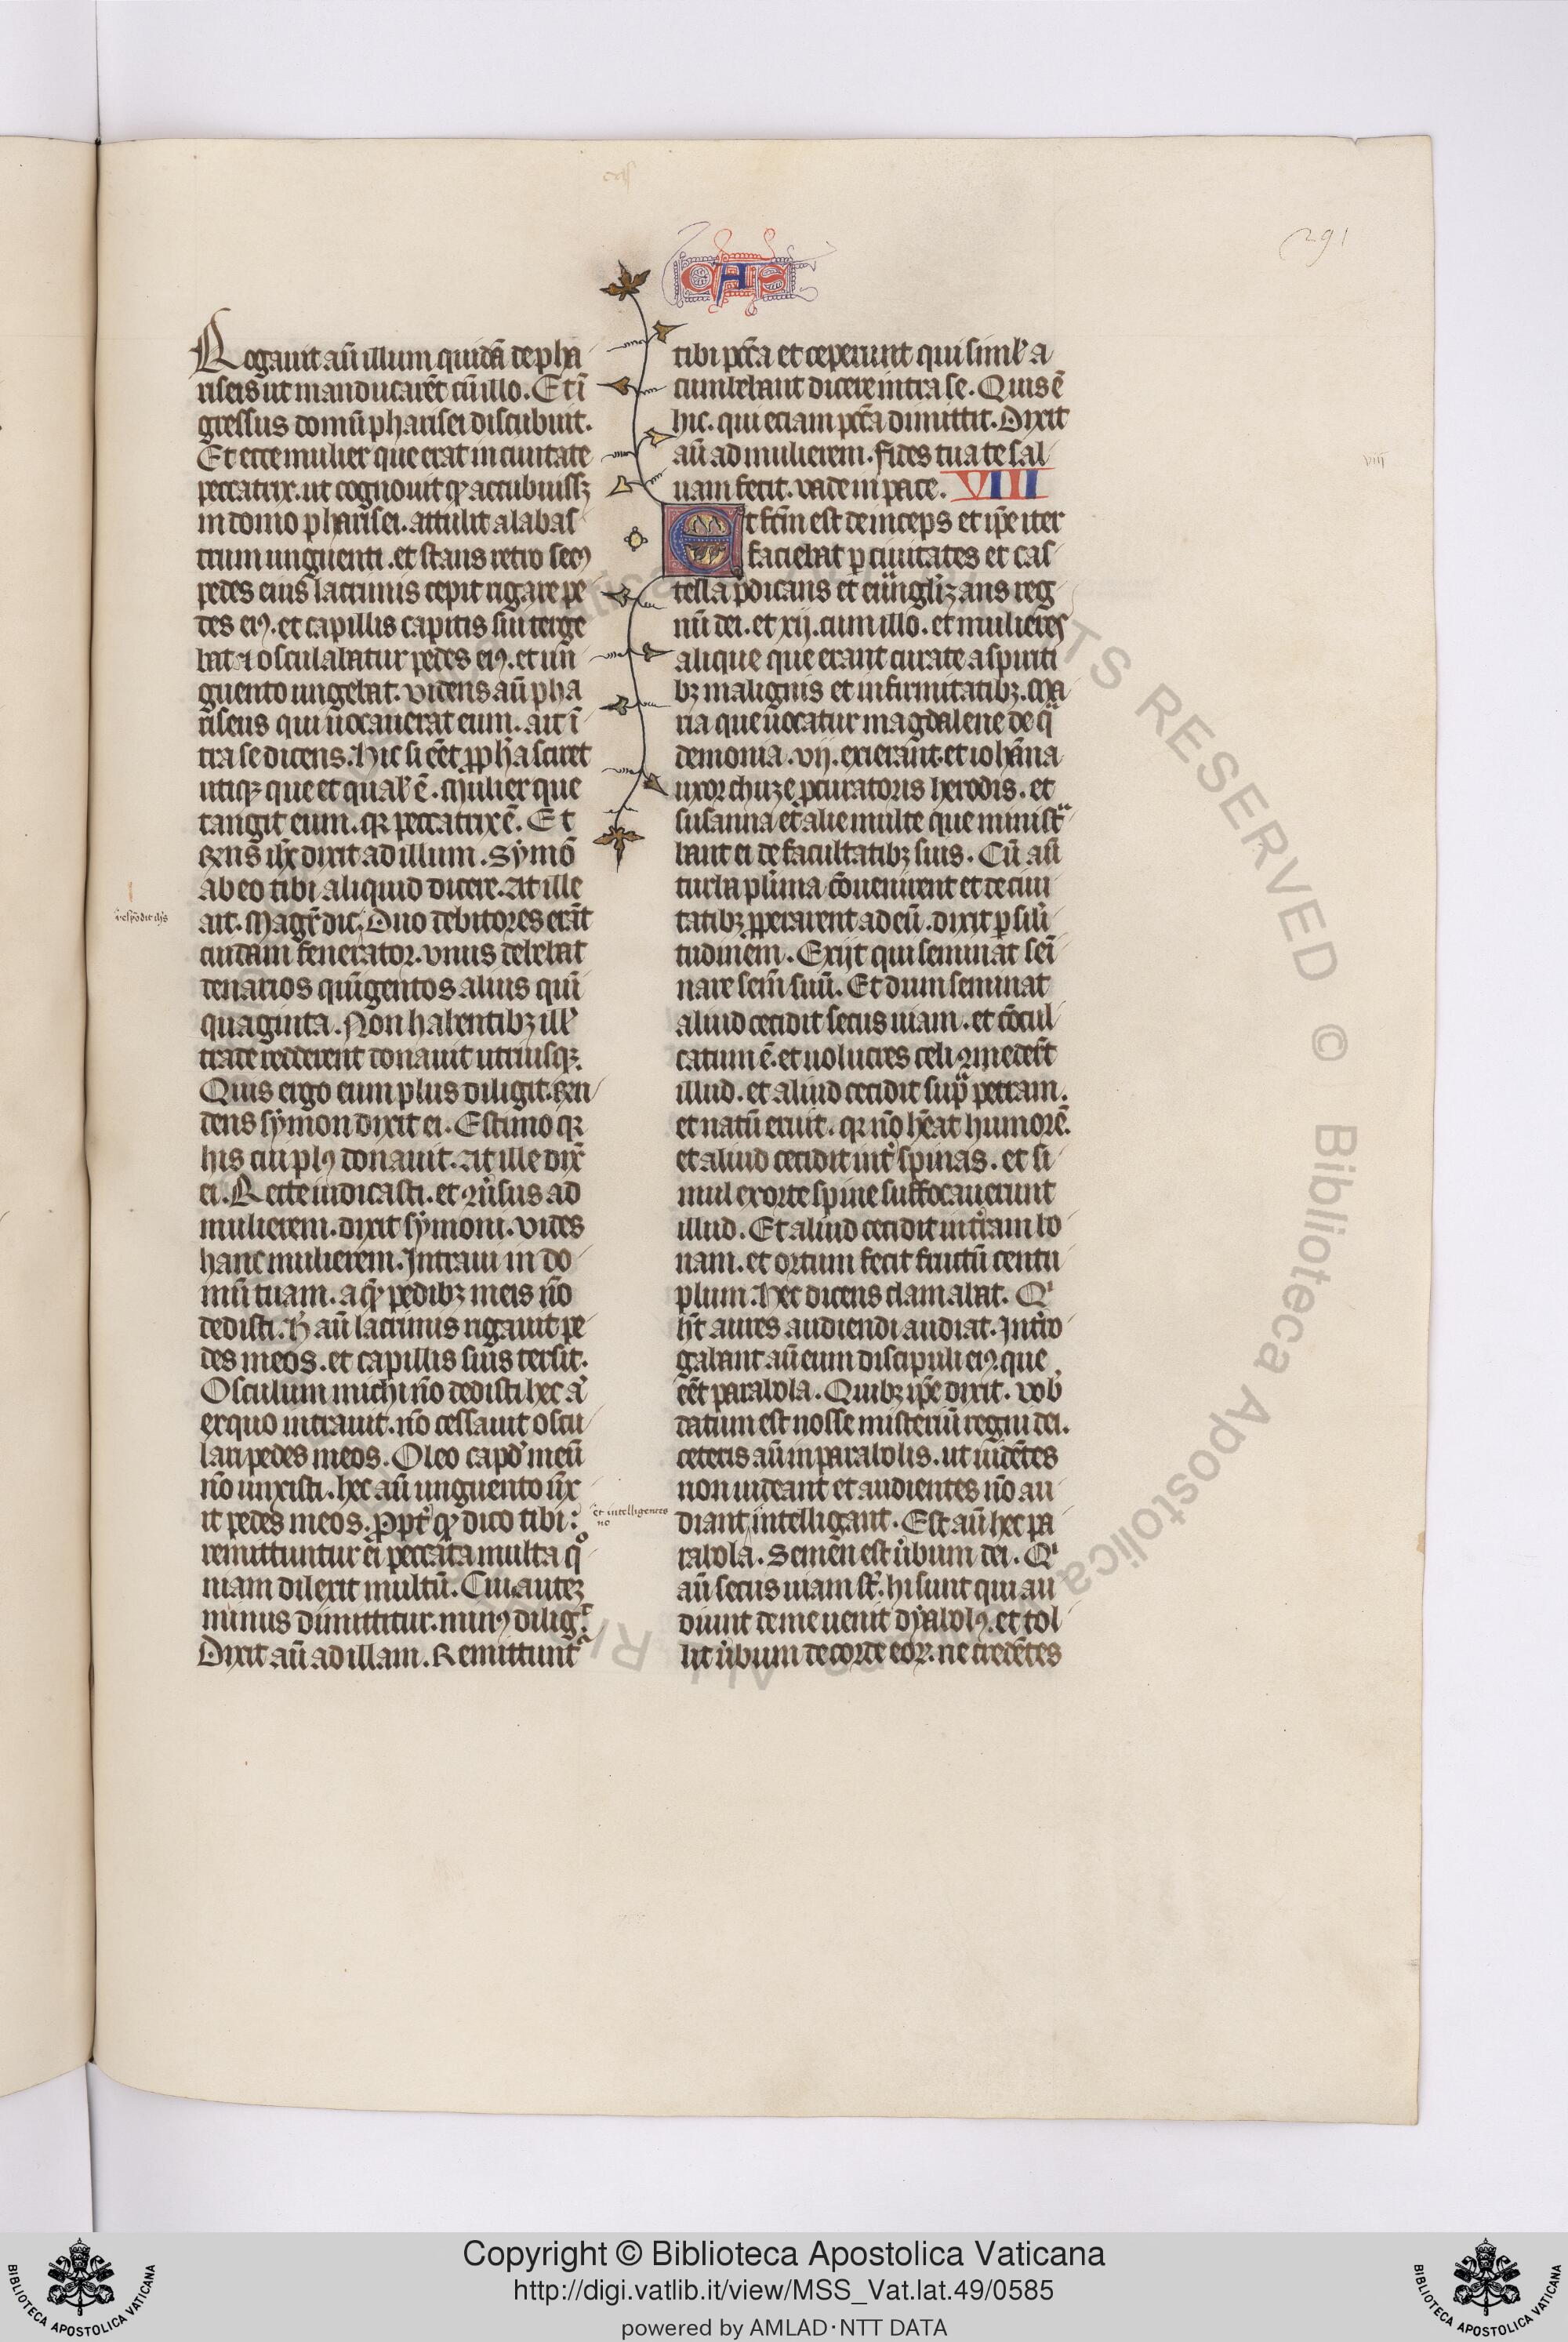 291
CAS
Rogauit aũ illum quidã de pha
riseis ut manducarẽt cũ illo. Et ĩ
gressus domũ pharisei discubuit.
Et ecce mulier que erat in ciuitate
peccatrix. ut cognouit qꝫ accubuissꝫ
in domo pharisei. attulit alabas
trum unguenti. et stans retro secꝰ
pedes eius lacrimis cepit rigare pe
des eiꝰ. et capillis capitis sui terge
bat et osculabatur pedes eiꝰ. et un
guento ungebat. Videns aũ pha
riseus qui uocauerat eum. ait ĩ
tra se dicens. Hic si eẽt ꝓpha sciret
utiqꝫ que et qual' ẽ. mulier que
tangit eum. qꝛ peccatrix ẽ. Et
Rens ihc̃ dixit ad illum. Sẏmõ
abeo tibi aliquid dicere. At ille
respõdit ihs
ait. Magr̃ dic. Duo debitores erãt
cuidam fenerator. vnus debebat
denarios quĩgentos alius quĩ
quaginta. Non habentibꝫ ill'
trade redderent donauit utriusqꝫ.
Quis ergo eum plus diligit. Ren
dens sẏmon dixit ei. Estimo qꝛ
his cui plꝰ donauit. At ille dix̃
ei. Recte iudicasti. et ꝯũsus ad
mulierem. dixit sẏmoni. vides
hanc mulierem. Intraui in do
mũ tuam. aqꝫ pedibꝫ meis nõ
dedisti. h̃ aũ lacrimis rigauit pe
des meos. et capillis suis tersit.
Osculum michi nõ dedisti hec a'
ex quo intrauit. nõ cessauit oscu
lari pedes meos. Oleo capd' meũ
nõ unxisti. hec aũ unguento ũx
it pedes meos. ꝓpt' qꝫ dico tibi:
remittuntur ei peccata multa qo
niam dilexit multũ. Cui auteꝫ
minus dimittitur. minꝰ diligt.
Dixit aũ ad illam. Remittuntᵃ
tibi pctã et ceperunt qui simul' a
cumbebant dicere intra se. Quis ẽ
hic. qui etiam pctã dimittit. Dixit
aũ ad mulierem. fides tua te sal
uam fecit. vade in pace. VIII
viii
Et fctm̃ est deinceps et ip̃e iter
faciebat ꝑ ciuitates et cas
tella p̃dicans et euũgliꝫans reg
nũ dei. et xij. cum illo. et mulieres
alique que erant curate a spiriti
bꝫ malignis et infirmitatibꝫ. Ma
ria que uocatur magdalene de qᵃ
demonia. vij. exierant. et iohãna
uxor chuze ꝓcuratoris herodis. et
susanna et alie multe que ministᵃ
bant ei de facultatibꝫ suis. Cũ aũ
turba plĩma cõuenirent et de ciui
tatibꝫ ꝓperarent ad eũ. dixit ꝑ silĩ
tudinem. Exijt qui seminat semĩ
nare semẽ suũ. Et dum seminat
aliud cecidit secus uiam. et cõcul
catum ẽ. et uolucres celi ꝯmedert̃
illud. et aliud cecidit supᵃ petram.
et natũ eruit. qꝛ nõ hẽat humorẽ.
et aliud cecidit int' spinas. et si
mul exorte spine suffocauerunt
illud. Et aliud cecidit in tr̃am bo
nam. et ortum fecit fructũ centu
plum. Hec dicens clamabat. Qi
ht̃ aures audiendi audiat. Int'ro
gabant aũ eum discipuli eiꝰ. que
eẽt parabola. Quibꝫ ip̃e dixit. vob'
datum est nosse misteriũ regni dei.
ceteris aũ in parabolis. ut uidẽtes
non uideant et audientes nõ au
et intelligentes
no
diant intelligant. Est aũ hec pa
rabola. Semen est ũbum dei. Qi
aũ secus uiam st'. hi sunt qui au
diunt deme uenit dẏabolꝰ. et tol
lit ũbum de corde eoꝝ. ne credẽtes
Copyright © Biblioteca Apostolica Vaticana
http://digi.vatlib.it/view/MSS_Vat.lat.49/0585
powered by AMLAD·NTT DATA